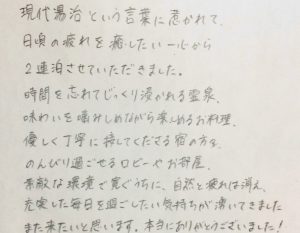 現代湯治という言葉に惹かれて、
日頃の疲れを癒したい一心から
2連泊させていただきました。
時間を忘れてじっくり浸かれる霊泉、
味わいを噛みしめながら楽しめるお料理、
優しく丁寧に接してくださる宿の方々、
のんびり過ごせるロビーやお部屋、
素敵な環境で寛ぐうちに、自然と疲れは消え、
充実した毎日を過ごしたい気持ちが湧いてきました
また来たいと思います。本当にありがとうございました!